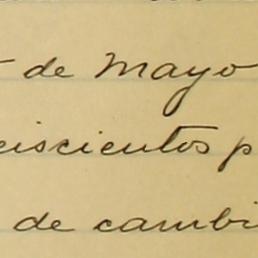 de Mayo
eiscientos p
de cambi